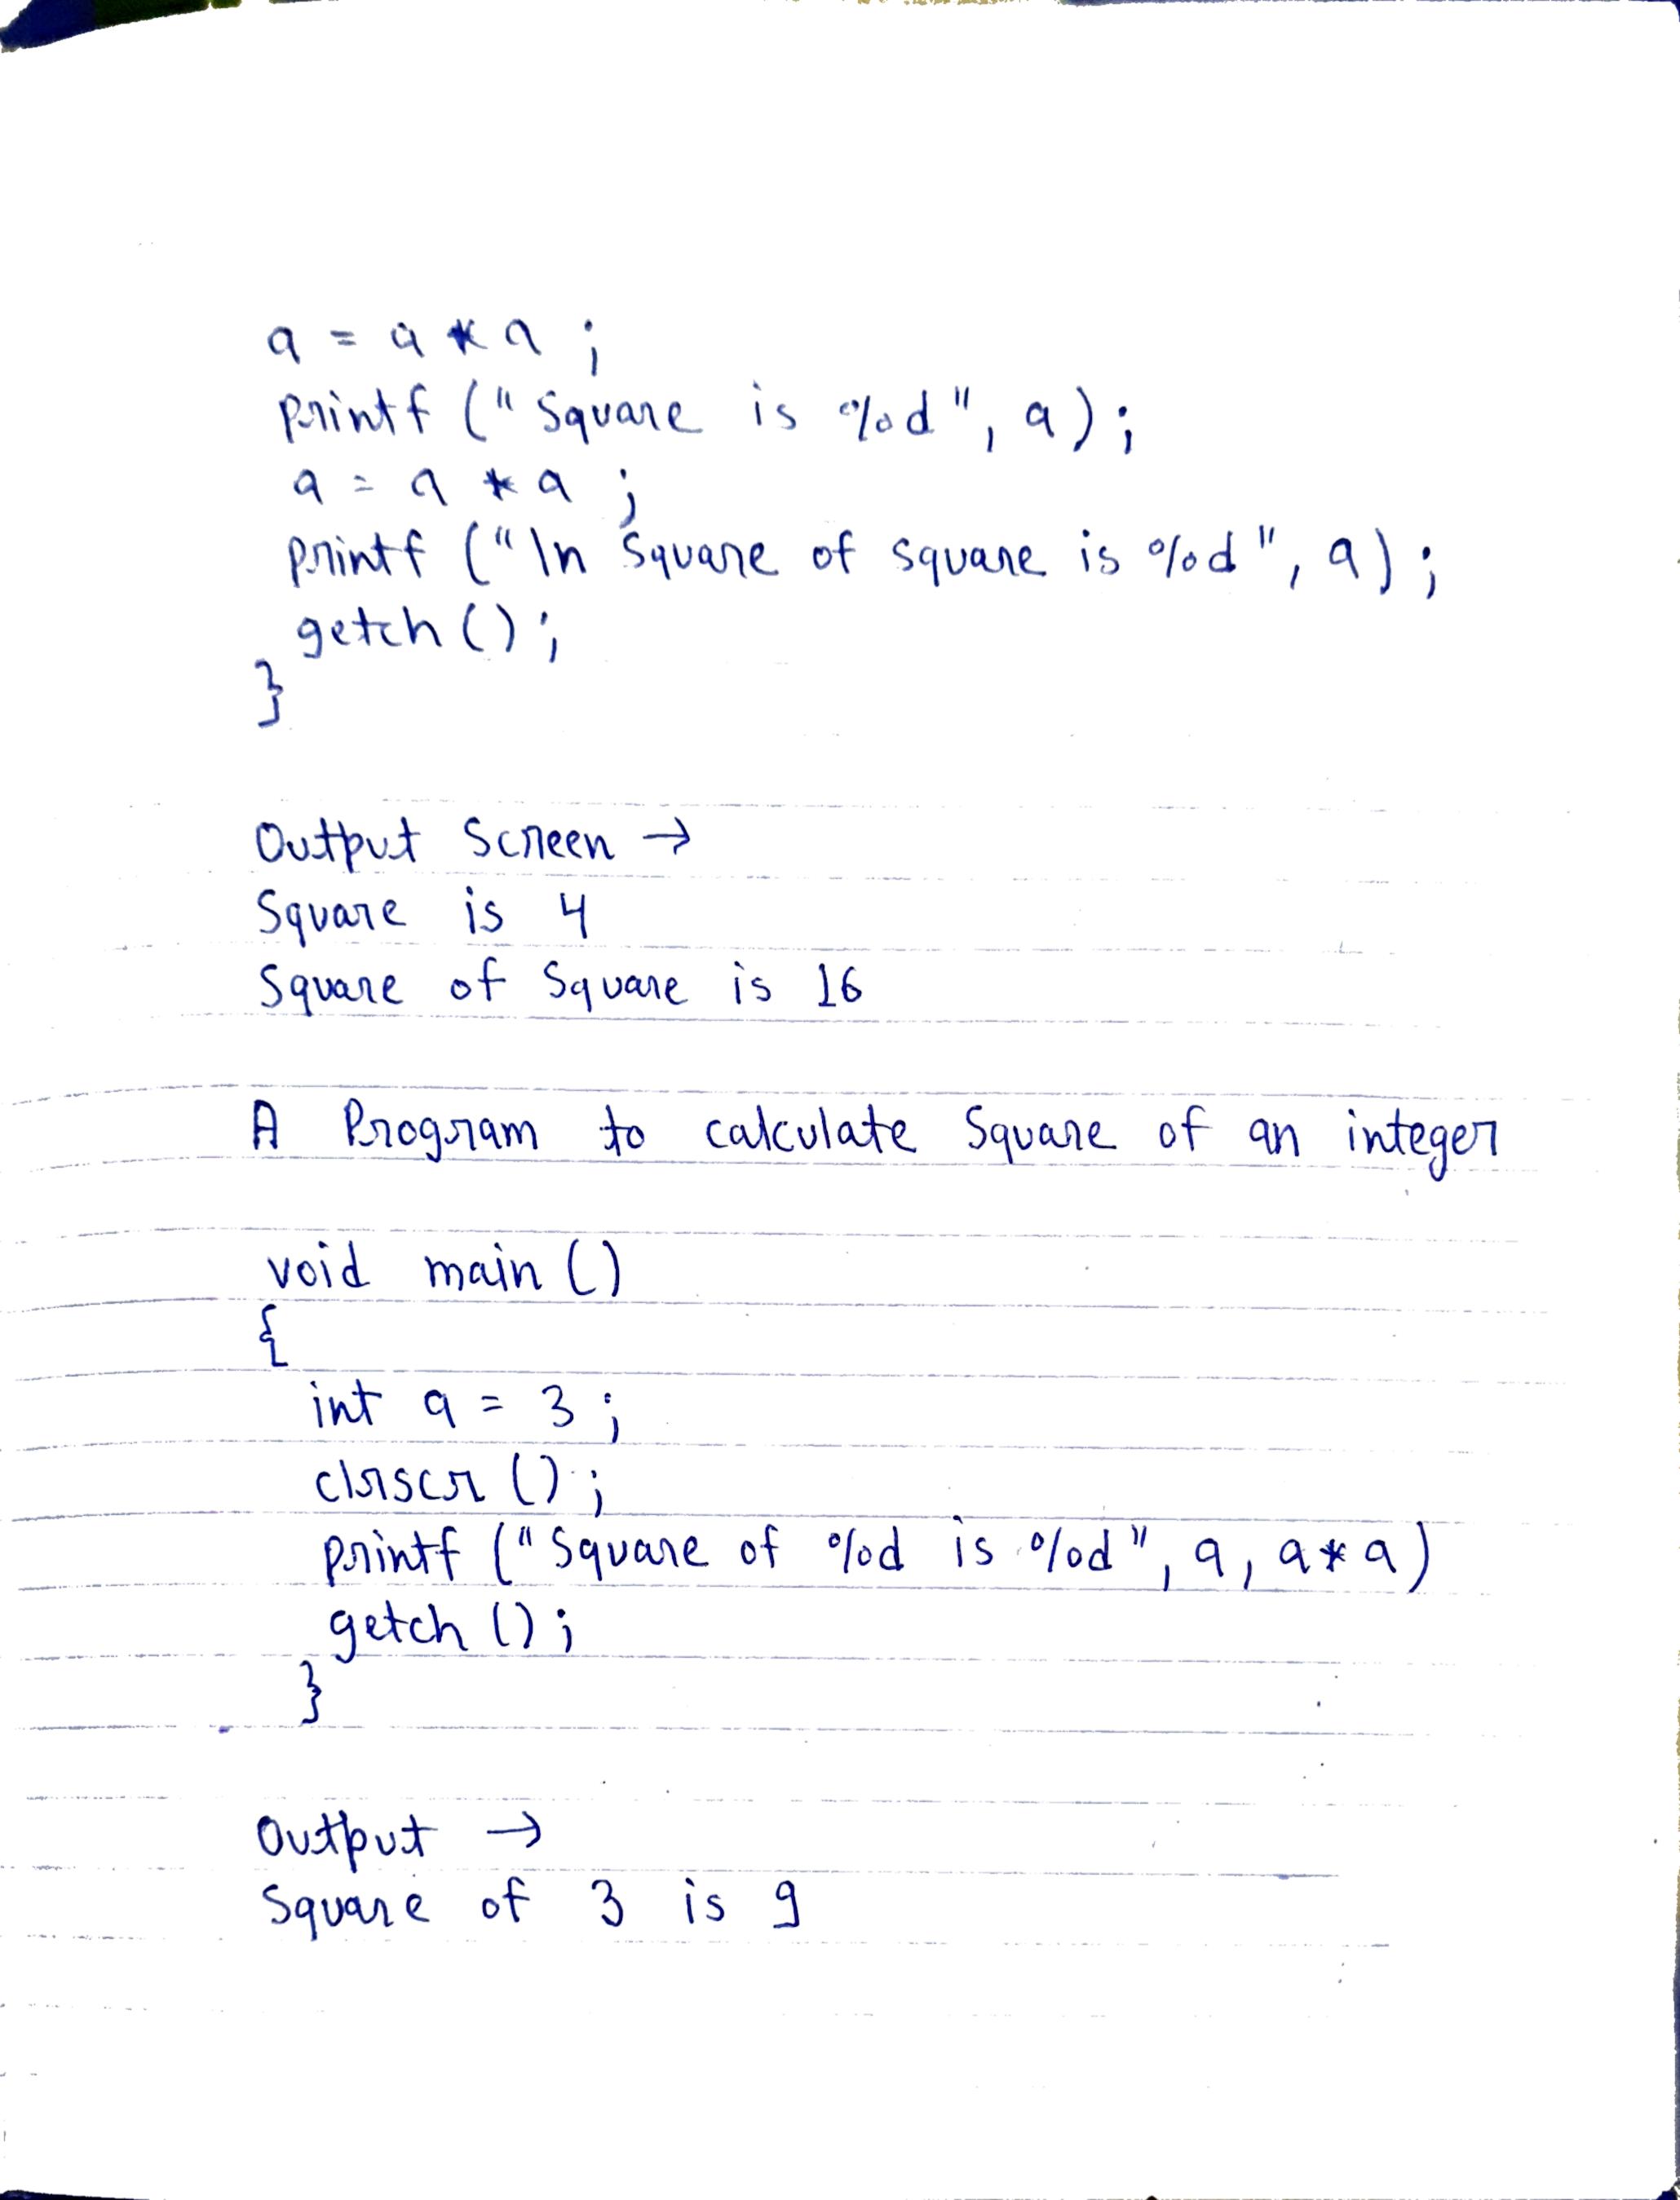 a = a * a ;
printf (" Square is %d", a) ;
a = a * a ;
printf (" \n Square of square is %d", a) ;
getch () ;
}
Output Screen →
Square is 4
Square of Square is 16
A Program to calculate Square of an integer
void main ()
{
int a = 3 ;
clrscr () ;
printf (" Square of %d is %d", a, a * a)
getch () ;
}
Output →
Square of 3 is 9